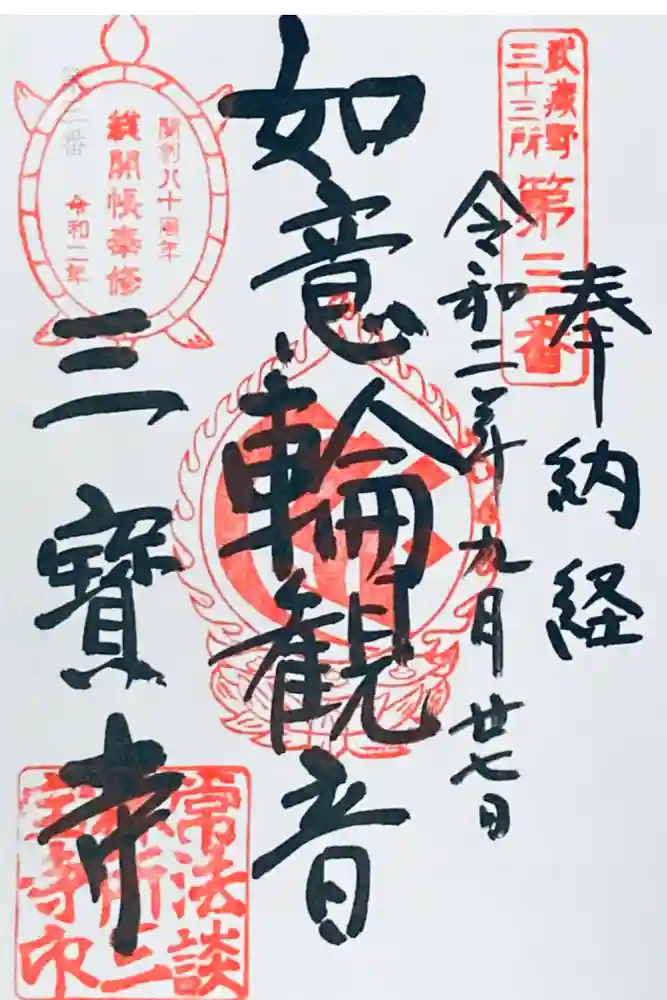 武蔵野
三十三所
第三番
奉納経
令和二年九月廿七日
如意輪観音
開創八十周年
総開帳奉修
令和二年
第三番
三寶寺
常法談
林所三
宝寺印